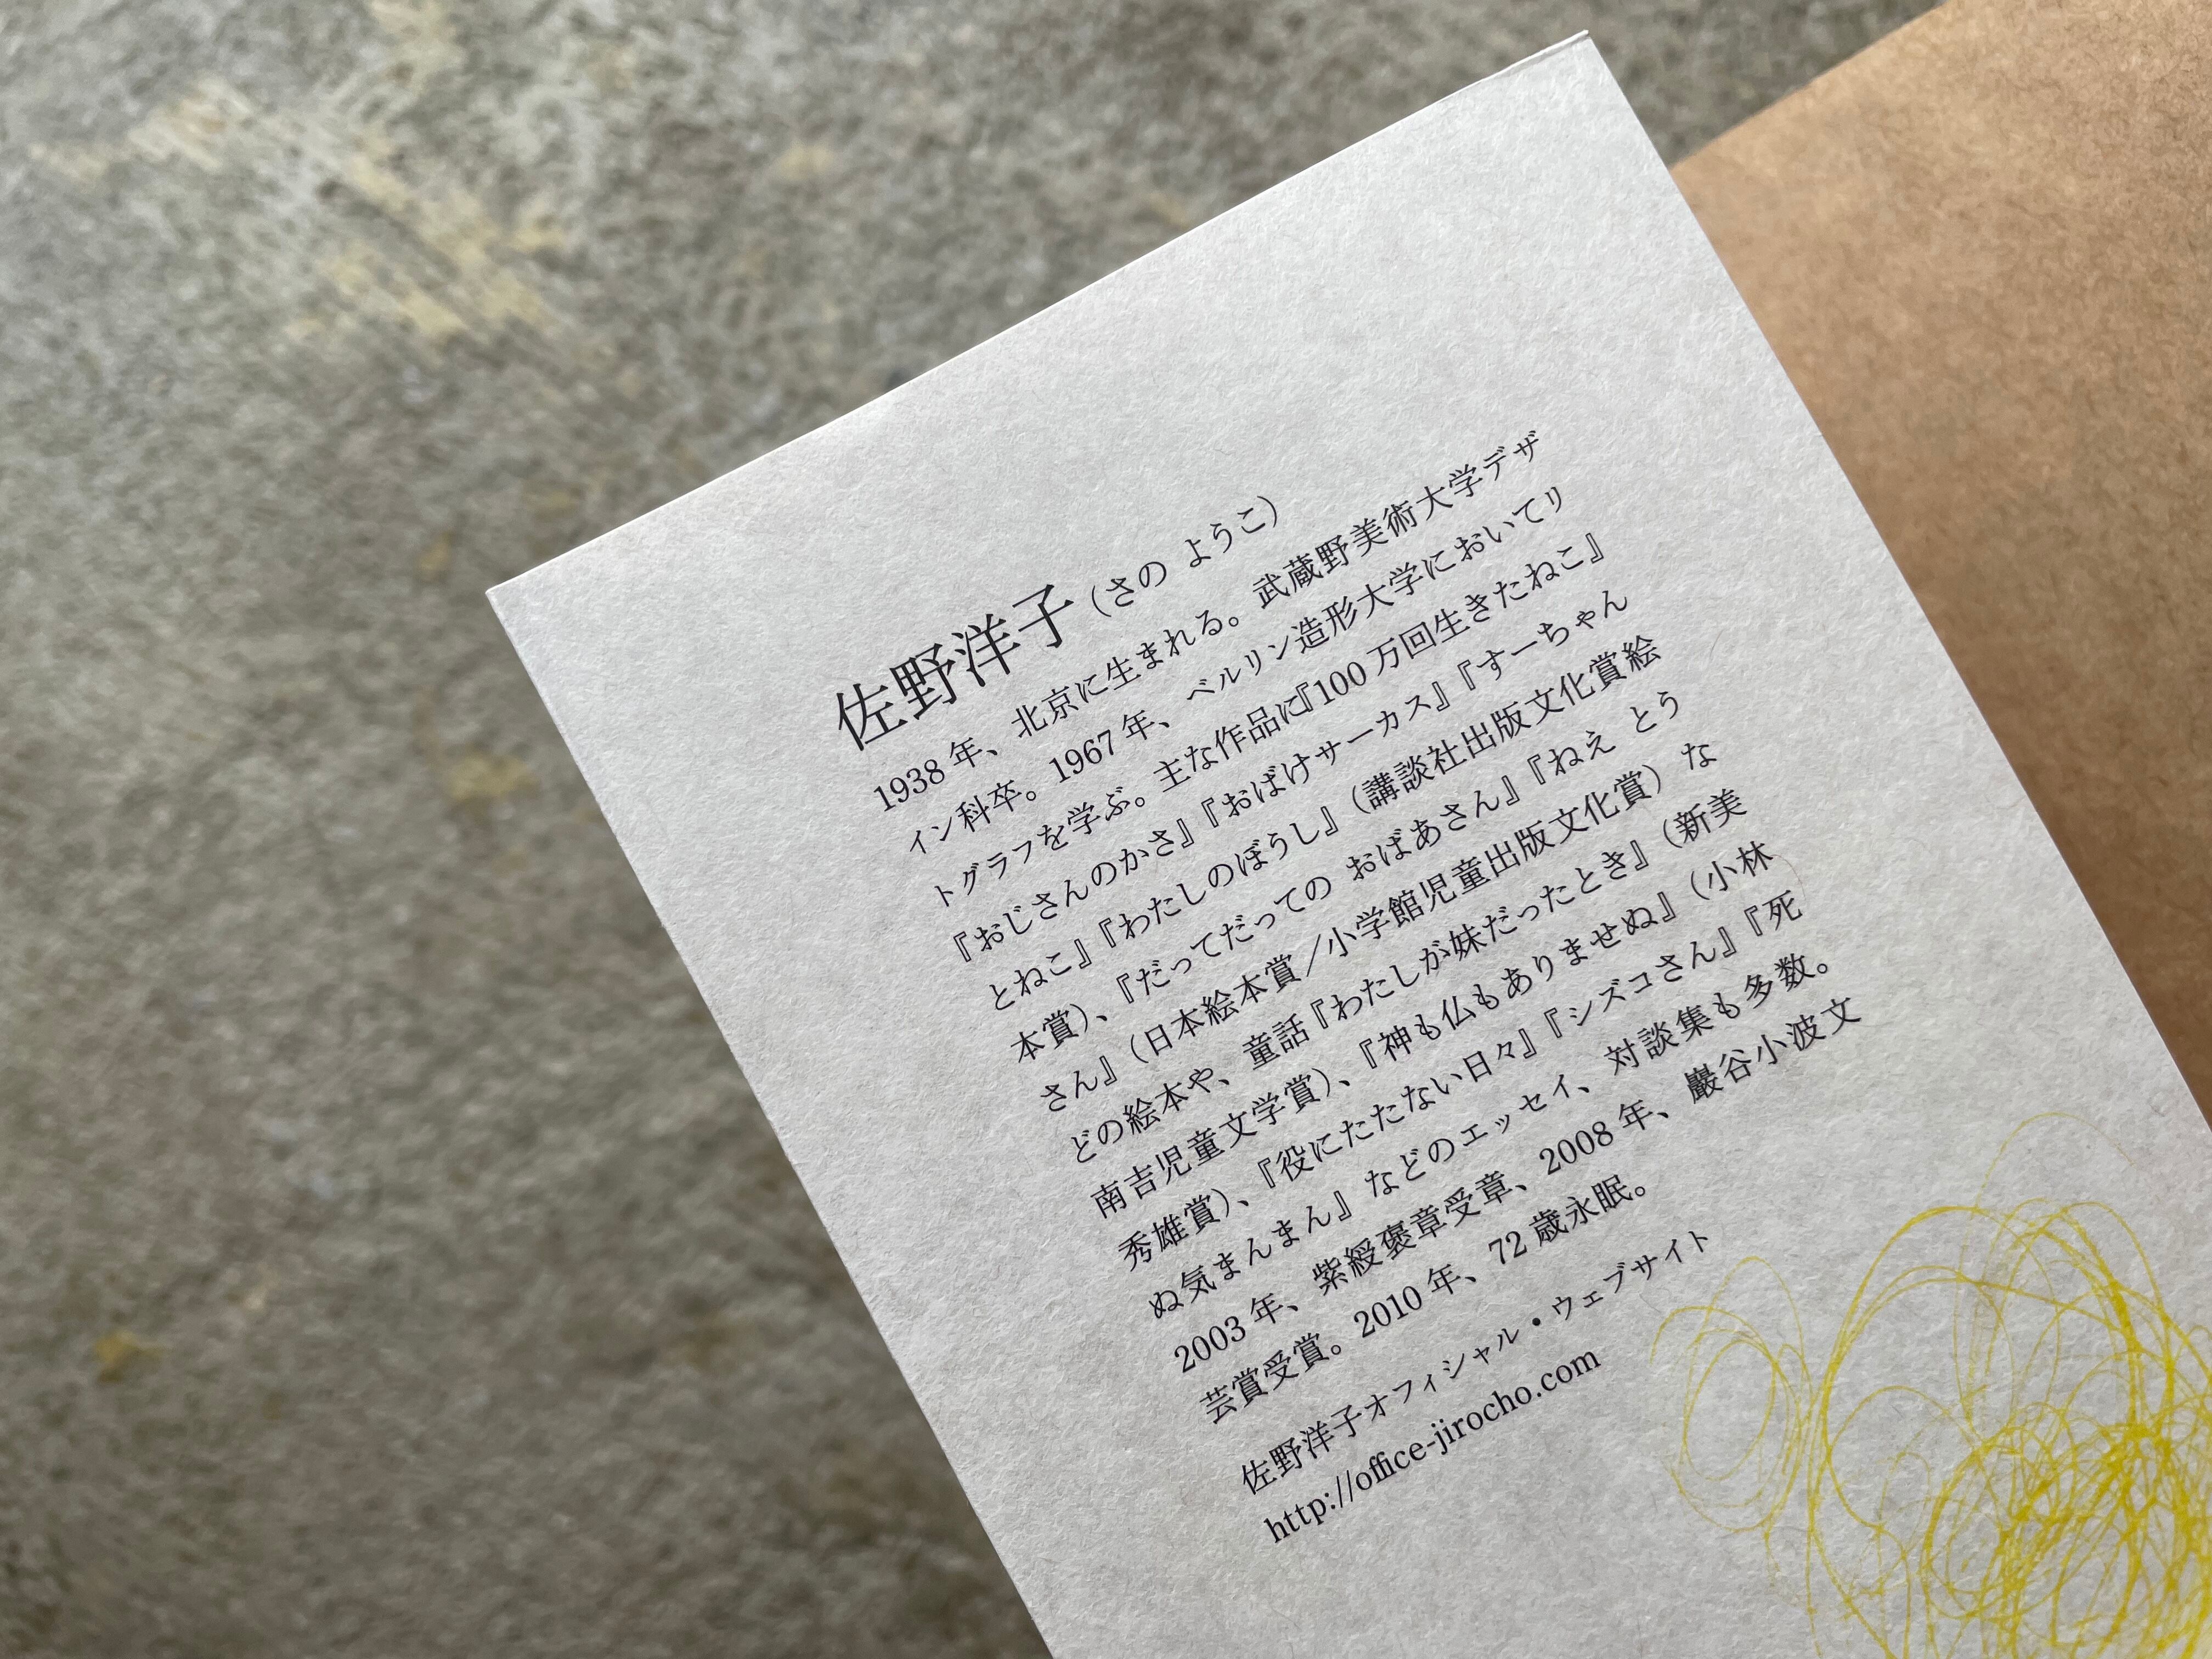 佐野洋子（さの ようこ）
1938 年、北京に生まれる。武蔵野美術大学デザ
イン科卒。1967 年、ベルリン造形大学においてリ
トグラフを学ぶ。主な作品に『100 万回生きたねこ』
『おじさんのかさ』『おばけサーカス』『すーちゃん
とねこ』『わたしのぼうし』（講談社出版文化賞絵
本賞）、『だってだっての おばあさん』『ねえ とう
さん』（日本絵本賞／小学館児童出版文化賞）な
どの絵本や、童話『わたしが妹だったとき』（新美
南吉児童文学賞）、『神も仏もありませぬ』（小林
秀雄賞）、『役にたたない日々』『シズコさん』『死
ぬ気まんまん』などのエッセイ、対談集も多数。
2003 年、紫綬褒章受章、2008 年、巖谷小波文
芸賞受賞。2010 年、72 歳永眠。
佐野洋子オフィシャル・ウェブサイト
http://office-jirocho.com